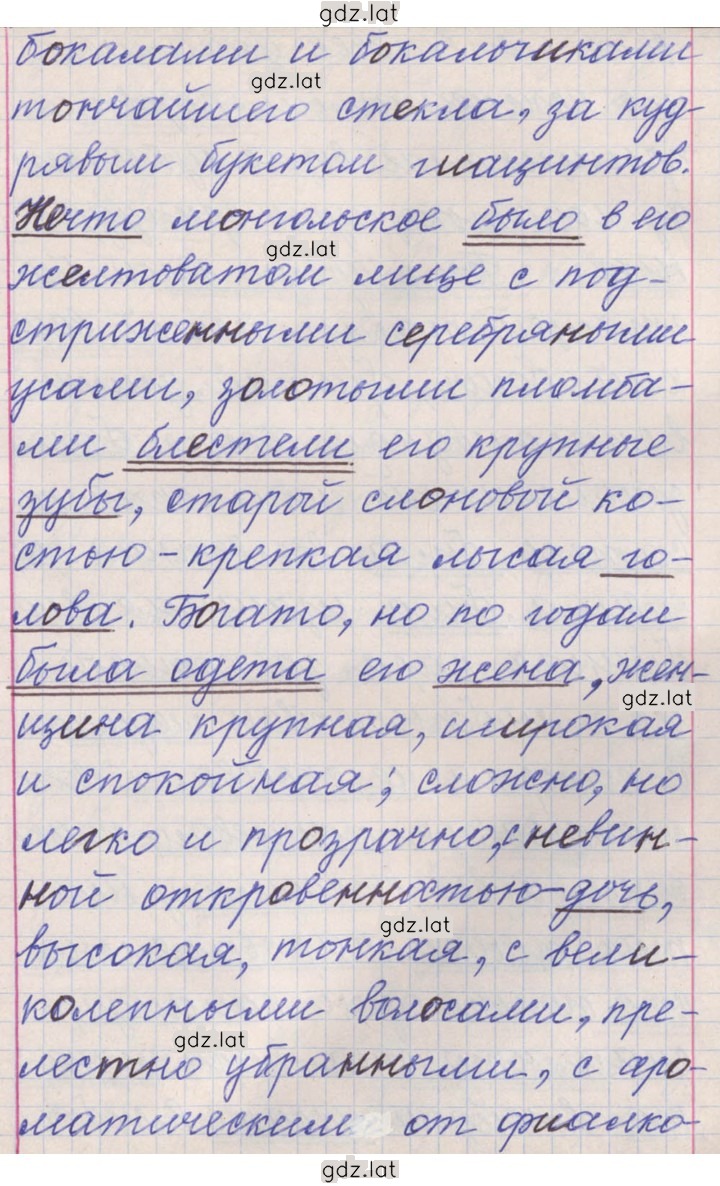 gdz.lat
бокалами и бокальчиками
gdz.lat
тончайшего стекла, за куд-
рявым букетом гиацинтов.
Нечто монгольское было в его
gdz.lat
желтоватом лице с под-
стриженными серебряными
усами, золотыми пломба-
ми блестели его крупные
зубы, старой слоновой ко-
стью - крепкая лысая го-
лова. Богато, но по годам
была одета его жена, жен-
gdz.lat
щина крупная, широкая
и спокойная; сложно, но
легко и прозрачно, с невин-
ной откровенностью - дочь,
gdz.lat
высокая, тонкая, с вели-
колепными волосами, пре-
gdz.lat
лестно убранными, с аро-
матическим от фиалко-
gdz.lat